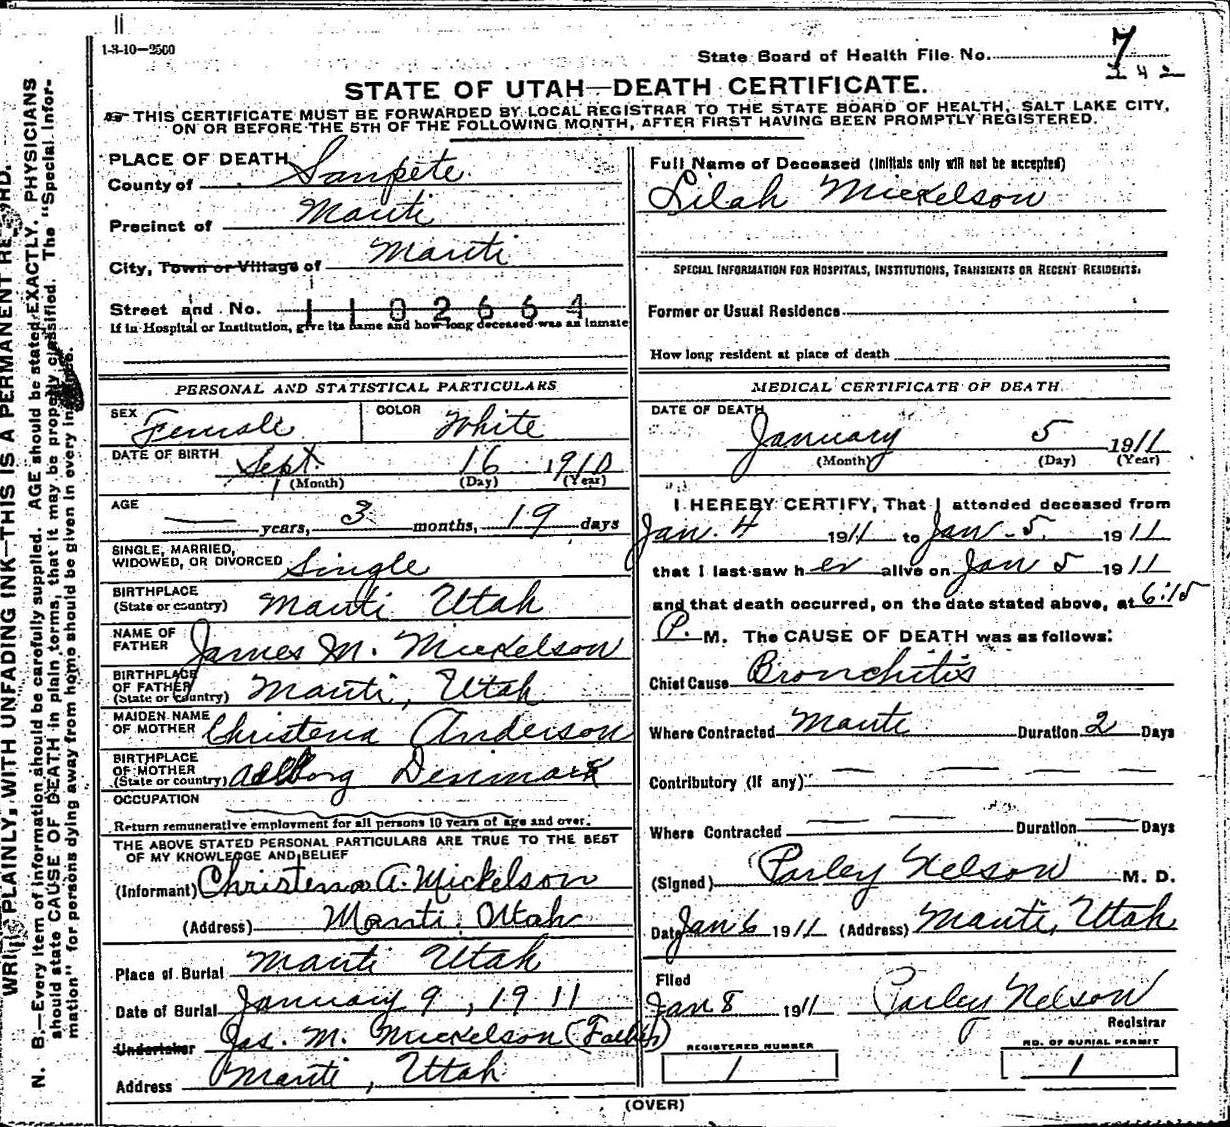 1-3-10-2500
State Board of Health File No. 7
242
STATE OF UTAH—DEATH CERTIFICATE.
THIS CERTIFICATE MUST BE FORWARDED BY LOCAL REGISTRAR TO THE STATE BOARD OF HEALTH, SALT LAKE CITY,
ON OR BEFORE THE 5TH OF THE FOLLOWING MONTH, AFTER FIRST HAVING BEEN PROMPTLY REGISTERED.
PLACE OF DEATH
County of Sanpete
Precinct of Manti
City, Town or Village of Manti
Street and No. 1102664
If in Hospital or Institution, give its name and how long deceased was an inmate
PERSONAL AND STATISTICAL PARTICULARS
SEX Female COLOR White
DATE OF BIRTH Sept. 16 1910
(Month) (Day) (Year)
AGE — years, 3 months, 19 days
SINGLE, MARRIED,
WIDOWED, OR DIVORCED Single
BIRTHPLACE
(State or country) Manti Utah
NAME OF
FATHER James M. Mickelson
BIRTHPLACE
OF FATHER
(State or country) Manti, Utah
MAIDEN NAME
OF MOTHER Christena Anderson
BIRTHPLACE
OF MOTHER
(State or country) Aalborg Denmark
OCCUPATION
Return remunerative employment for all persons 10 years of age and over.
THE ABOVE STATED PERSONAL PARTICULARS ARE TRUE TO THE BEST
OF MY KNOWLEDGE AND BELIEF
(Informant) Christena A. Mickelson
(Address) Manti. Utah
Place of Burial Manti Utah
Date of Burial January 9, 1911
Undertaker Jas. M. Mickelson (Father)
Address Manti, Utah
Full Name of Deceased (Initials only will not be accepted)
Lilah Mickelson
SPECIAL INFORMATION FOR HOSPITALS, INSTITUTIONS, TRANSIENTS OR RECENT RESIDENTS.
Former or Usual Residence
How long resident at place of death
MEDICAL CERTIFICATE OF DEATH
DATE OF DEATH
January 5 1911
(Month) (Day) (Year)
I HEREBY CERTIFY, That I attended deceased from
Jan. 4 1911 to Jan. 5. 1911
that I last saw her alive on Jan 5 1911
and that death occurred, on the date stated above, at 6:15
P. M. The CAUSE OF DEATH was as follows:
Chief Cause Bronchitis
Where Contracted Manti Duration 2 Days
Contributory (If any) — — — —
Where Contracted — — Duration — Days
(Signed) Parley Nelson M. D.
Date Jan 6 1911 (Address) Manti, Utah
Filed
Jan 8 1911 Parley Nelson
Registrar
REGISTERED NUMBER
1
NO. OF BURIAL PERMIT
1
(OVER)
WRITE PLAINLY, WITH UNFADING INK—THIS IS A PERMANENT RECORD.
N. B.—Every item of information should be carefully supplied. AGE should be stated EXACTLY. PHYSICIANS
should state CAUSE OF DEATH in plain terms, that it may be properly classified. The "Special Infor-
mation" for persons dying away from home should be given in every instance.